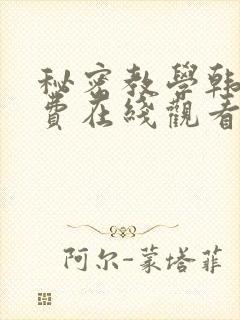 秘密教學韩
费在綫觀看
阿尔-蒙塔菲